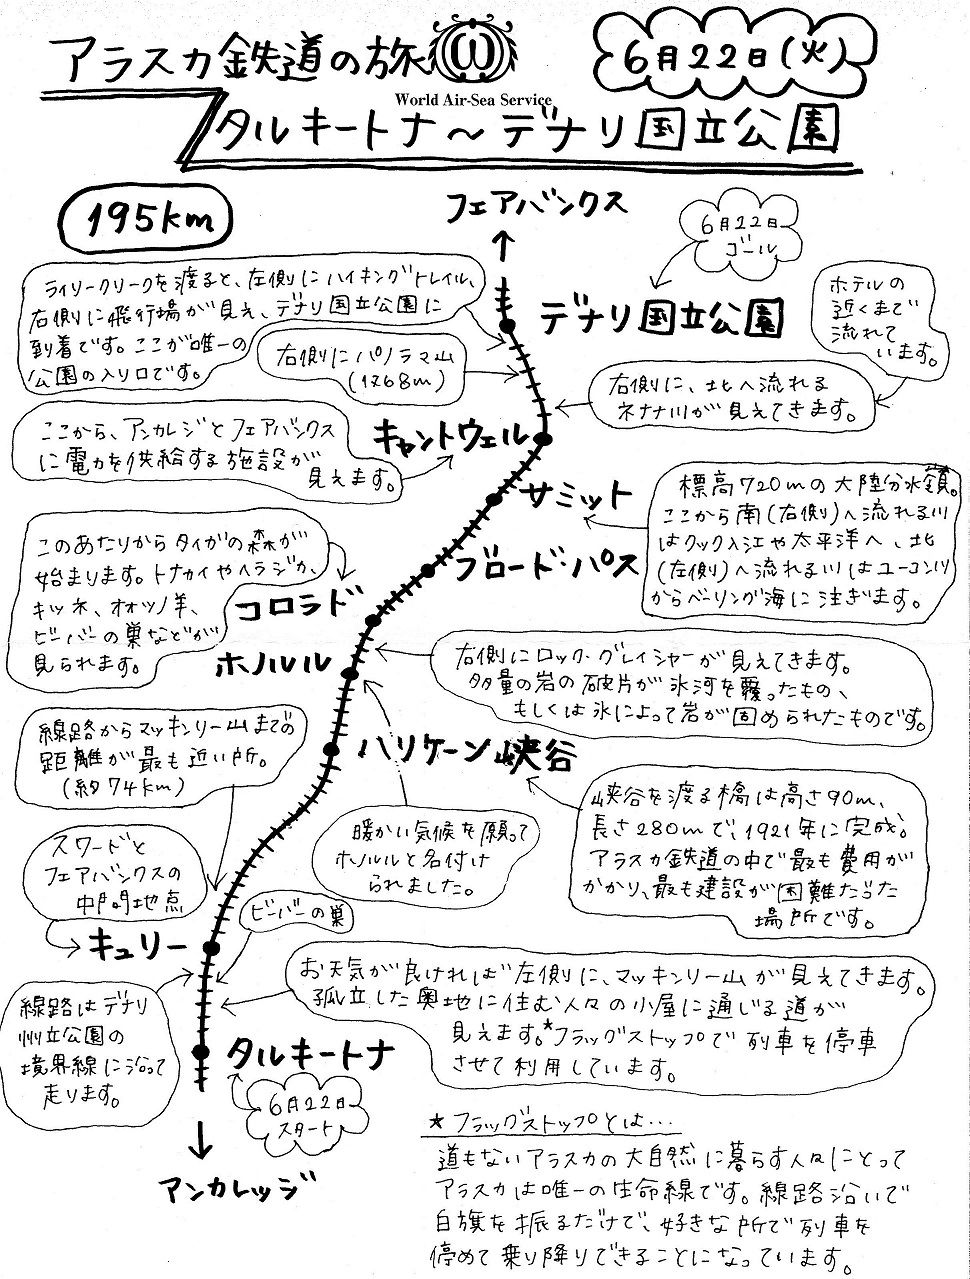 アラスカ鉄道の旅
World Air-Sea Service
6月22日(火)
タルキートナ〜デナリ国立公園
195km
フェアバンクス
6月22日
ゴール
デナリ国立公園
ライリークリークを渡ると、左側にハイキングトレイル、
右側に飛行場が見え、デナリ国立公園に
到着です。ここが唯一の
公園の入り口です。
右側にパノラマ山
(1768m)
ホテルの
近くまで
流れて
います。
右側に、北へ流れる
ネナナ川が見えてきます。
ここから、アンカレジとフェアバンクス
に電力を供給する施設が
見えます。
キャントウェル
サミット
標高720mの大陸分水嶺。
ここから南(右側)へ流れる川
はクック入江や太平洋へ、北
(左側)へ流れる川はユーコン川
からベーリング海に注ぎます。
ブロード・パス
このあたりからタイガの森が
始まります。トナカイやヘラジカ、
キツネ、オオツノ羊、
ビーバーの巣などが
見られます。
コロラド
ホノルル
右側にロック・グレイシャーが見えてきます。
多量の岩の破片が氷河を覆ったもの、
もしくは氷によって岩が固められたものです。
線路からマッキンリー山までの
距離が最も近い所。
(約74km)
ハリケーン峡谷
峡谷を渡る橋は高さ90m、
長さ280mで、1921年に完成。
アラスカ鉄道の中で最も費用が
かかり、最も建設が困難だった
場所です。
暖かい気候を願って
ホノルルと名付け
られました。
スワードと
フェアバンクスの
中間地点
キュリー
ビーバーの巣
お天気が良ければ左側に、マッキンリー山が見えてきます。
孤立した奥地に住む人々の小屋に通じる道が
見えます。*フラッグストップで列車を停車
させて利用しています。
線路はデナリ
州立公園の
境界線に沿って
走ります。
タルキートナ
6月22日
スタート
アンカレッジ
★フラッグストップとは…
道もないアラスカの大自然に暮らす人々にとって
アラスカは唯一の生命線です。線路沿いで
白旗を振るだけで、好きな所で列車を
停めて乗り降りできることになっています。